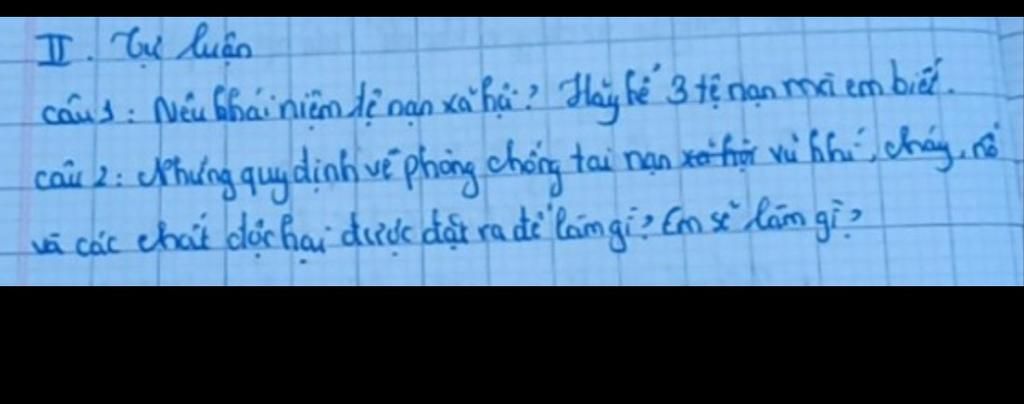 II. Tự luận
câu 1: Nêu khái niệm tệ nạn xã hội? Hãy kể 3 tệ nạn mà em biết.
câu 2: Những quy định về phòng chống tai nạn xã hội vũ khí, cháy, nổ
và các chất độc hại được đặt ra để làm gì? Em sẽ làm gì?